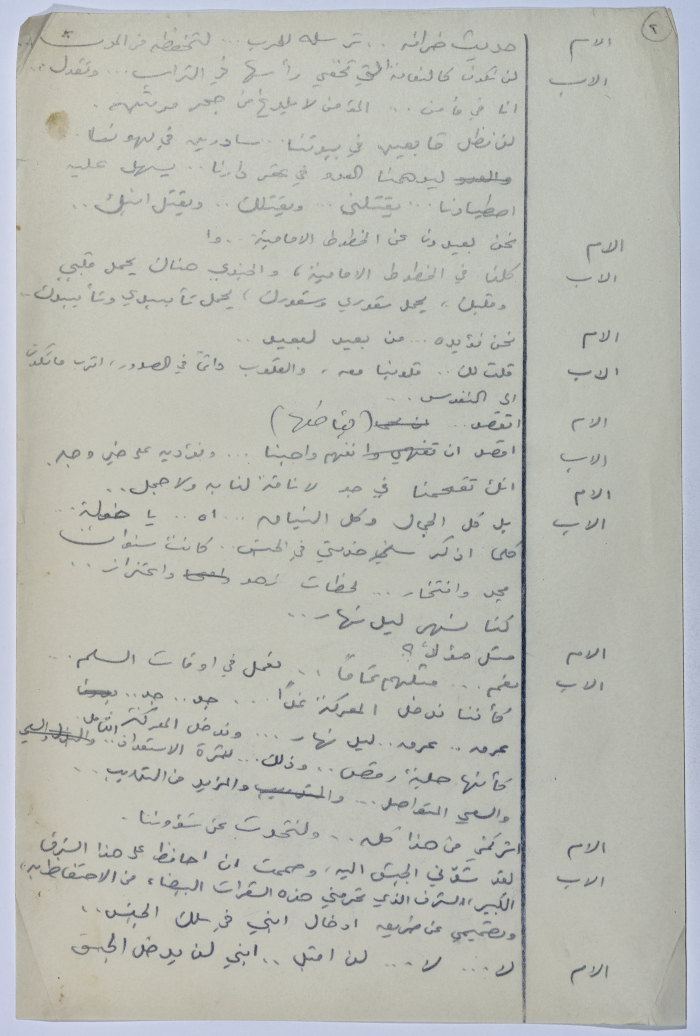 ٢
الام حديث خرافه .. ترسله للحرب ... لتحفظه من الموت
الاب لن نكون كالنعامة التي تخفي رأسها في التراب ... وتقول ..
انا في مأمن ... المؤمن لا يلدغ من جحر مرتين .
لن نظل قابعين في بيوتنا .. سادرين في لهونا
والعدو ليدهمنا العدو في عقر دارنا .. يسهل عليه
اصطيادنا ... يقتلني ... ويقتلك .. ويقتل ابنك ..
الام نحن بعيدون عن الخطوط الامامية .. وا
الاب كلنا في الخطوط الامامية ، والجندي هناك يحمل قلبي
وقلبك ، يحمل شعوري وشعورك ، يحمل تأييدي وتأييدك ..
الام نحن نؤيده ... من بعيد لبعيد ..
الاب قلت لك .. قلوبنا معه ، والقلوب دائما في الصدور ، اقرب ما تكون
الى النفوس ...
الام اتقصد .. (مقاطعا)
الاب اقصد ان نفهم واجبنا ... ونؤديه على خير وجه .
الام انك تقحمنا في جد لا ناقة لنا به ولا جمل ..
الاب بل كل الجمال وكل النياق ... اه .. يا خولة ..
كلما اذكر سني خدمتي في الجيش .. كانت سنوات
مجد وافتخار ... لحظات زهو واعتزاز ..
كنا نسهر ليل نهار ..
الام مثل هؤلاء ؟
الاب نعم ... مثلهم تماماً .. نعمل في اوقات السلم ...
كأننا ندخل المعركة غداً ... جد .. جد ..
عرق .. عرق .. ليل نهار ... وندخل المعركة
كأنها حلبة رقص .. وذلك .. لكثرة الاستعداد ..
والسعي المتواصل ... والمزيد من التدريب ..
الام اتركني من هذا كله ... ولنتحدث عن شؤوننا .
الاب لقد شوقني الجيش اليه ، وصممت ان احافظ على هذا الشرف
الكبير ، الشرف الذي تحرمني هذه الشعرات البيضاء من الاحتفاظ به ،
وتصميمي عن طريق ادخال ابني في سلك الجيش ..
الام لا ... لا ... لن اقبل .. ابني لن يدخل الجيش